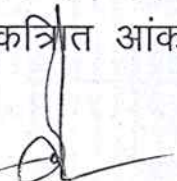 कत्रित आंक